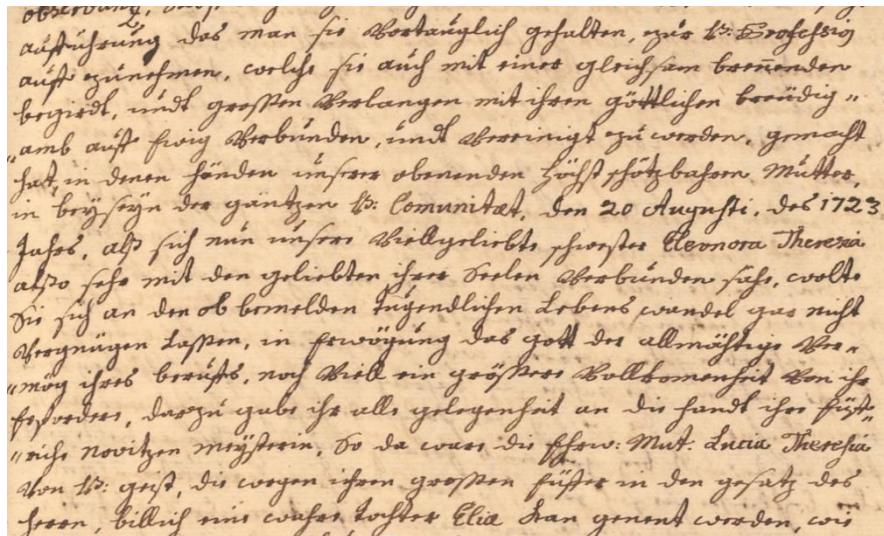 aufführung das man sie Vortauglich gehalten, zur H: Profession
auff zunehmen, welche sie auch mit einer gleichsam brennenden
begirdt, undt grossen Verlangen mit ihren göttlichen breüdig„
„amb auff Ewig Verbunden, undt Vereinigt zu werden, gemacht
hat, in denen händen unserer obenenden höchst schätzbahren Mutter,
in beÿseÿn der gantzen H: Comunitæt, den 20 Augusti, des 1723
Jahrs, alß sich nun unsere Viellgeliebte schwester Eleonora Theresia
also sehr mit den geliebten ihrer Seelen Verbunden sahe, wolte
Sie sich an den ob bemelden tugendlichen Lebens wandel gar nicht
Vergnügen Lassen, in Erwögung das gott der allmächtige Ver„
„mög ihres beruffs, noch Viell ein grössere Vollkomenheit Von ihr
Erfordere, darzu gabe ihr alle gelegenheit an die handt ihre
Novitzen Meÿsterin, So da ware die Ehrw: Mut: Lucia Theresia
Von H: geist, die wegen ihren grossen Eÿffer in den gesatz des
herrn, billich eine wahre tochter Eliæ kan genent werden, wie